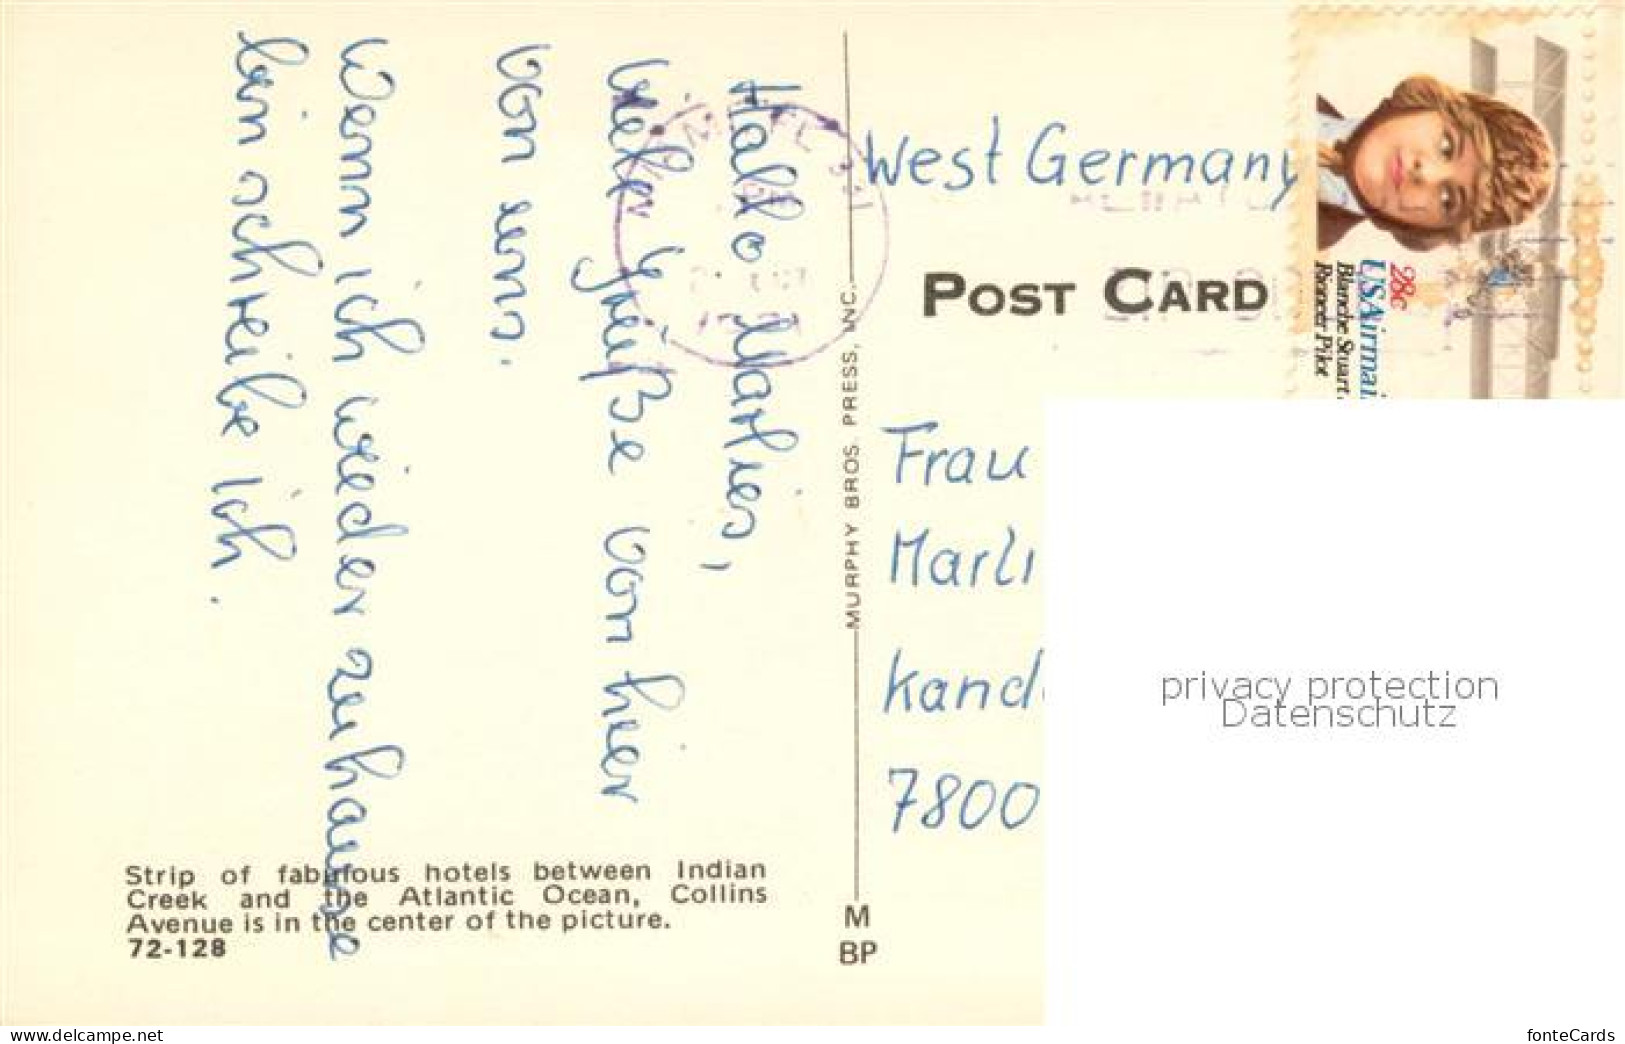 Hallo Marlies,
Viele Grüße von hier
von uns.
Wenn ich wieder zuhause
bin schreibe ich.
Strip of fabulous hotels between Indian
Creek and the Atlantic Ocean, Collins
Avenue is in the center of the picture.
72-128
MURPHY BROS. PRESS, INC.
M
BP
West Germany
POST CARD
28c
USAirmail
Blanche Stuart
Pioneer Pilot
Frau
Marli
Kand
7800
privacy protection
Datenschutz
https://www.delcampe.net
fonteCards